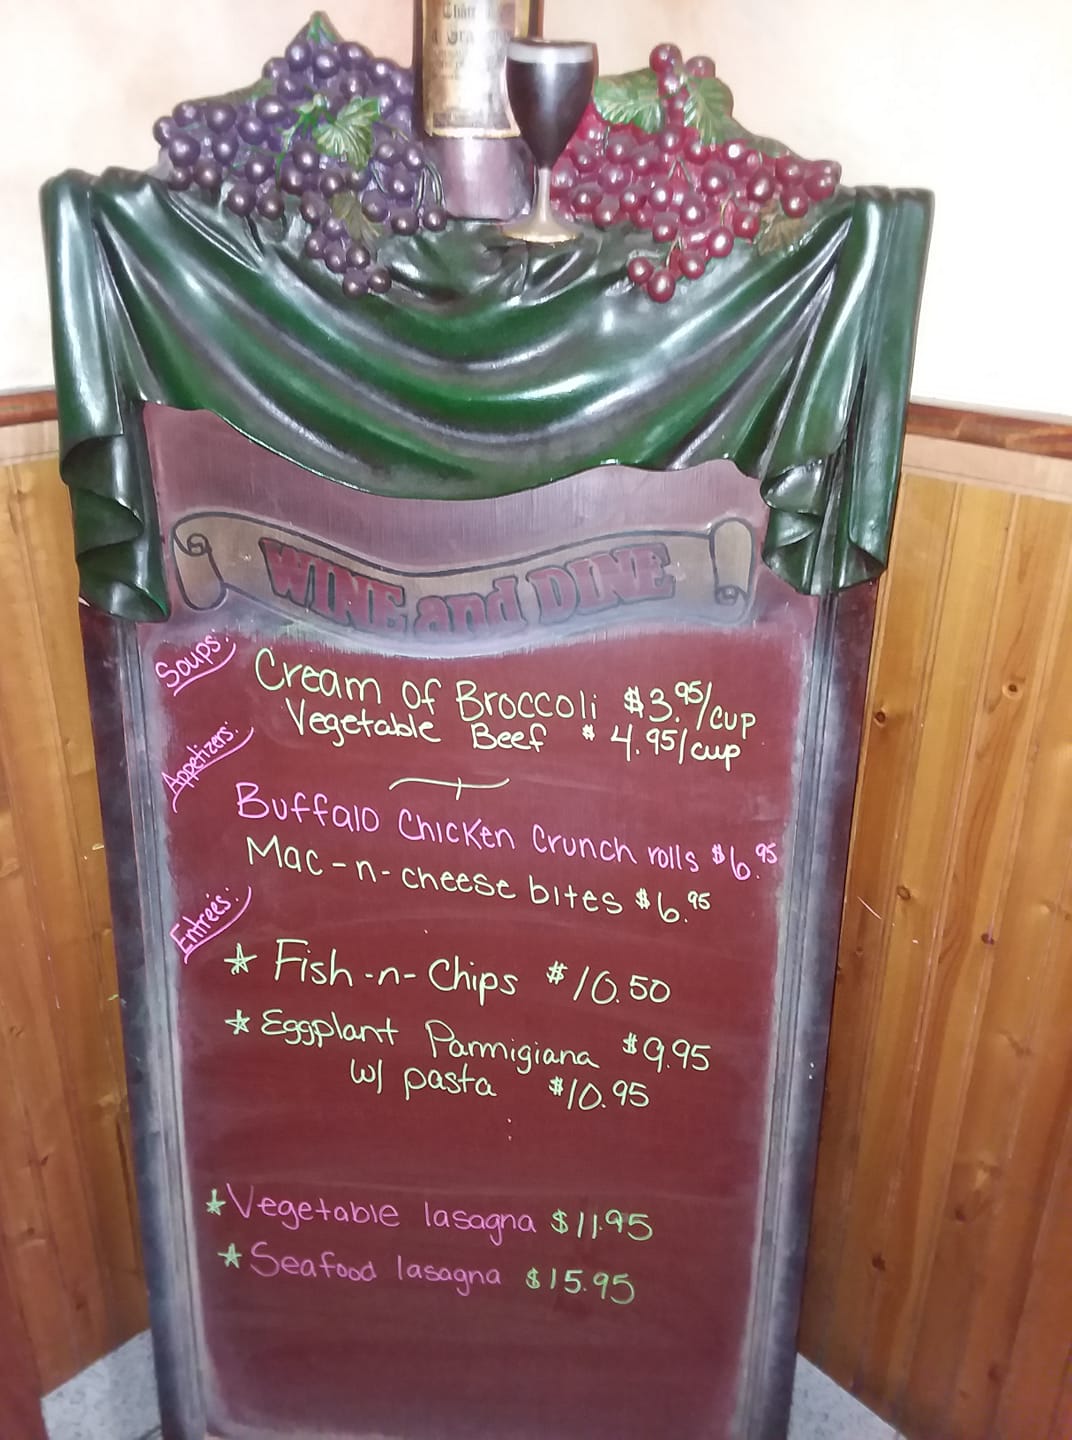 WINE and DINE
Soups:
Cream of Broccoli $3.95/cup
Vegetable Beef $4.95/cup
Appetizers:
Buffalo Chicken Crunch rolls $6.95
Mac-n-cheese bites $6.95
Entreés:
* Fish-n-Chips $10.50
* Eggplant Parmigiana $9.95
w/ pasta $10.95
* Vegetable lasagna $11.95
* Seafood lasagna $15.95